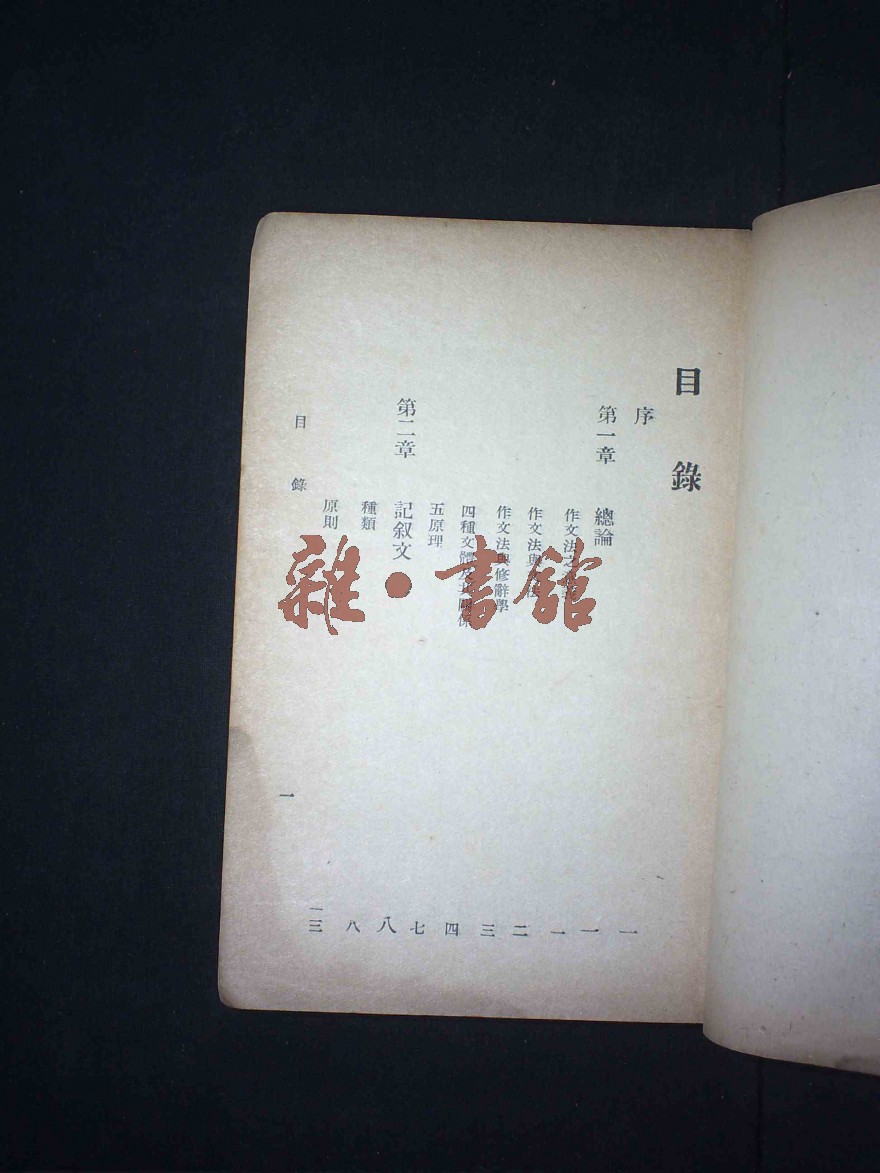 目錄
序 一
第一章 總論 一
作文法之 一
作文法與 二
作文法與修辭學 三
四種文體及其關係 四
五原理 七
第二章 記叙文 八
種類 八
原則 一三
目錄 一
雜·書館